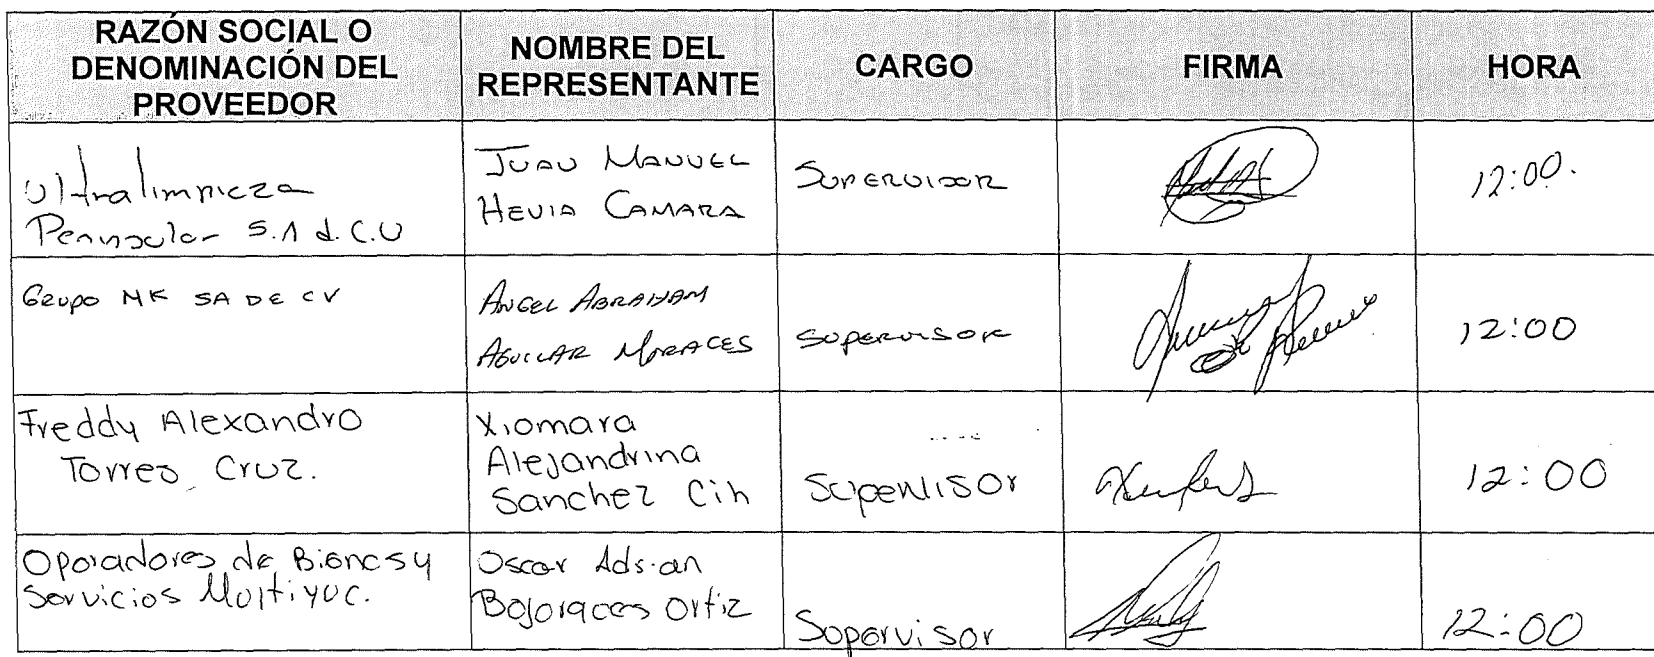 RAZÓN SOCIAL O
DENOMINACIÓN DEL
PROVEEDOR
NOMBRE DEL
REPRESENTANTE
CARGO
FIRMA
HORA
Ultralimpieza
Peninsular S.A d. C.V
JUAN MANUEL
HEVIA CAMARA
SUPERVISOR
12:00.
GRUPO MK SA DE CV
ANGEL ABRAHAM
AGUILAR MORALES
SUPERVISOR
12:00
Freddy Alexandro
Torres Cruz.
Xiomara
Alejandrina
Sanchez Cih
Supervisor
12:00
Operadores de Bienes y
Servicios Multiyuc.
Oscar Adrian
Bojorques Ortiz
Supervisor
12:00